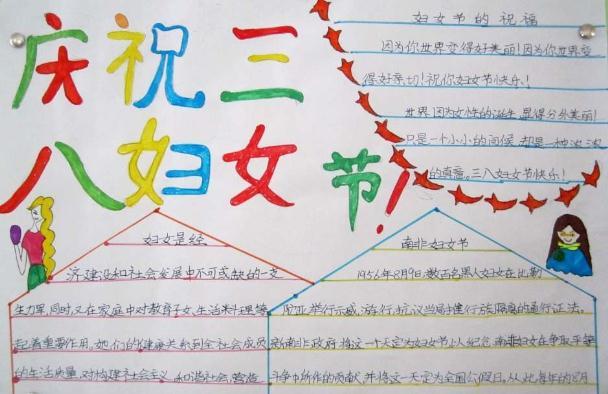 庆祝三
八妇女
节!
妇女节的祝福
因为你世界变得好美丽!因为你世界变
得好亲切!祝你妇女节快乐!
世界因为女性的诞生显得分外美丽!
只是一个小小的问候,却是一种浓浓
的真蕴。三八妇女节快乐!
妇女是经
济建设和社会发展中不可或缺的一支
生力军,同时,又在家庭中对教育子女、生活料理等
起着重要作用,她们的健康关系到全社会成员
的生活质量,对构建社会主义和谐社会,营造
南非妇女节
1956年8月9日,数百名黑人妇女在比勒
陀利亚举行示威游行,抗议当局推行种族隔离的通行证法。
新南非政府将这一个天定为妇女节以人纪念南非妇女在争取平等
斗争中所作的贡献,并将这一天定为全国公假日。从此每年的8月